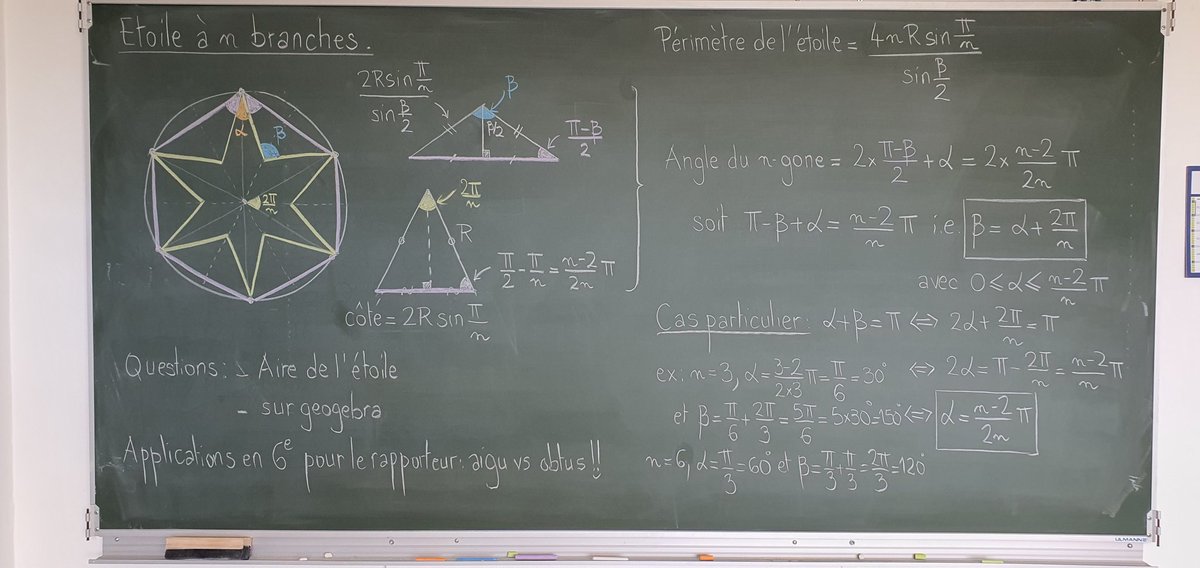 Etoile à n branches.
α
β
2π/n
2R sin π/n / sin β/2
β
β/2
π-β/2
2π/n
R
π/2 - π/n = n-2/2n π
côté = 2R sin π/n
Questions : - Aire de l'étoile
- sur geogebra
Applications en 6e pour le rapporteur : aigu vs obtus !!
Périmètre de l'étoile = 4nR sin π/n / sin β/2
Angle du n-gone = 2× π-β/2 + α = 2× n-2/2n π
soit π-β+α = n-2/n π i.e. β = α + 2π/n
avec 0 ≤ α ≤ n-2/n π
Cas particulier : α+β = π ⇔ 2α + 2π/n = π
ex : n=3, α = 3-2/2×3 π = π/6 = 30° ⇔ 2α = π - 2π/n = n-2/n π
et β = π/6 + 2π/3 = 5π/6 = 5×30° = 150° ⇔ α = n-2/2n π
n=6, α = π/3 = 60° et β = π/3 + π/3 = 2π/3 = 120°
ULMANN